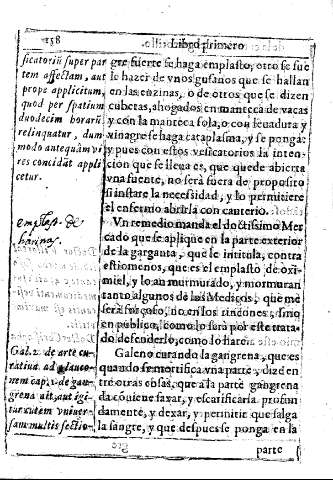 158
Libro primero
sicatoriũ super par
tem affectam, aut
prope applicitum,
quod per spatium
duodecim horarũ
relinquatur, dum
modo antequàm vi
res concidãt appli
cetur.
emplast. de
harinas
Gal. 2. de arte cu-
ratiua ad glauco-
nem cap. 2. de gan-
grena ait, aut igi-
tur cutem vniuer-
sam multis sectio-
gre fuerte se haga emplasto, otro se fue
le hazer de vnos gusanos que se hallan
en las enzinas, o de otros que se dizen
cubetas, ahogados en manteca de vacas
y con la manteca sola, o con leuadura y
vinagre se haga cataplasma, y se ponga:
y pues con estos vesicatorios la inten-
cion que se lleua es, que quede abierta
vna fuente, no serà fuera de proposito
si instare la necessidad, y lo permitiere
el enfermo abrirla con cauterio.
Vn remedio manda el doctissimo Mer
cado que se aplique en la parte exterior
de la garganta, que le intitula, contra
estiomenos, que es el emplasto de oxi-
miel, y lo an murmurado, y mormuran
tanto algunos de las Medicos, que me
serà forçoso, no en los rincones, sino
en publico, como lo serà por este trata-
do defenderlo, como lo harè.
Galeno curando la gangrena, que es
quando se mortifica vna parte, dizd en
tre otras cosas, que a la parte gangrena
da cõuiene saxar, y escarificarla profun
damente, y dexar, y permitir que salga
la sangre, y que despues se ponga en la
parte